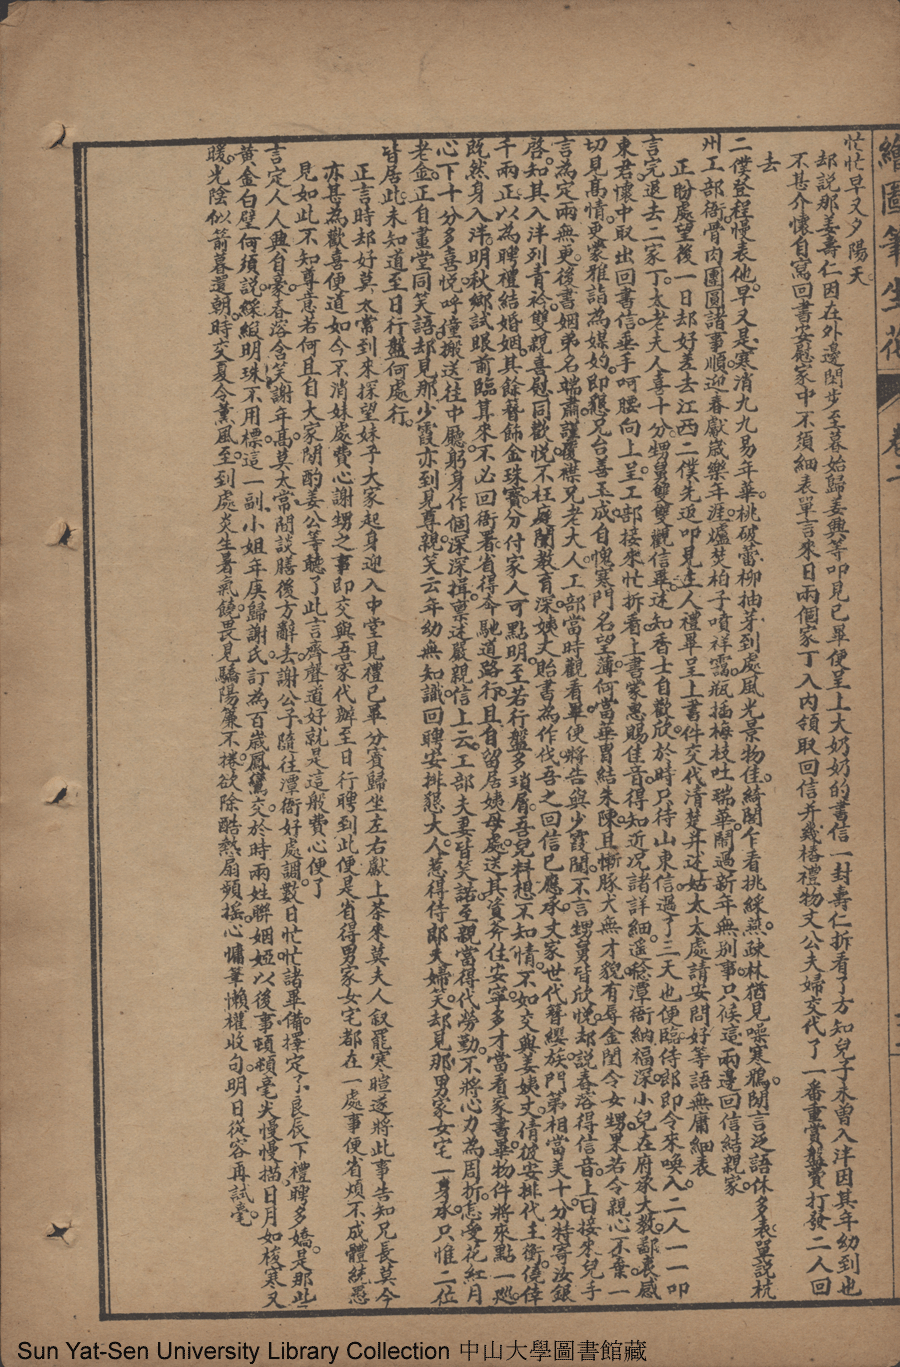 繪圖筆生花 卷二
忙忙早又夕陽天
却説那姜壽仁因在外邊閒步至暮始歸姜興等叩見已畢便呈上大奶奶的書信一封壽仁拆看了方知兒子未曾入泮因其年幼到也
不甚介懷自寫回書安慰家中不須細表單言來日兩個家丁入內領取回信并幾樁禮物文公夫婦交代了一番重賞盤費打發二人回
去
二僕登程慢表他早又是寒消九九易年華桃破蕾柳抽芽到處風光景物佳綺閣乍看挑綵燕疎林猶見噪寒鴉閒言泛語休多表單説杭
州工部衙骨肉團圓諸事順迎春獻歲樂年涯爐焚柏子噴祥靄瓶插梅枝吐瑞華鬧過新年無别事只候這兩邊回信結親家
正盼處望後一日却好差去江西二僕先返叩見主人禮畢呈上書件交代清楚并述姑太太處請安問好等語無庸細表
言完退去二家丁太老夫人喜十分甥舅雙雙觀信畢述知香士自歡欣於時只待山東信過了三天也便臨侍郎即令來喚入二人一一叩
東君懷中取出回書信垂手呵腰向上呈工部接來忙拆看上書蒙惠賜佳音得知近況諸詳細遙稔潭衙納福深小兒在府承大教鄙衷感
切見高情更蒙雅詣為媒妁即懇兄台善玉成自愧寒門名望薄何當華胄結朱陳且慚豚犬無才貌有辱金閨令女甥果若令親心不棄一
言為定兩無更後書姻弟名端肅謹覆襟兄老大人工部當時觀看畢便將告與少霞聞不言甥舅皆欣悦却説春溶得信音上曰接來兒手
啓知其入泮列青衿雙親喜慰同歡悦不枉庭闈教育深姨丈貽書為作伐吾之回信已應承文家世代簪纓族門第相當美十分特寄汝銀
千兩正以為聘禮結婚姻其餘簪飾金珠寶分付家人可點明至若行盤多瑣屑吾兒料想不知情不如交與姜姨丈倩彼安排代主衡僥倖
既然身入泮明秋鄉試眼前臨算來不必回衙署省得奔馳道路行且自留居姨母處送其資斧住安寧多才當看家書畢物件將來點一巡
心下十分多喜悦呼僮搬送往中廳躬身作個深深揖禀述嚴親信上云工部夫妻皆笑諾至親當得代勞勤不將心力為周折怎受花紅月
老金正自畫堂同笑語却見那少霞亦到見尊親笑云年幼無知識回聘安排懇大人惹得侍郎夫婦笑却見那男家女宅一身承只惟二位
皆居此未知道至日行盤何處行
正言時却好莫太常到來探望妹子大家起身迎入中堂見禮已畢分賓歸坐左右獻上茶來莫夫人叙罷寒暄遂將此事告知兄長莫今
亦甚為歡喜便道如今不消妹處費心謝甥之事即交與吾家代辦至日行聘到此便是省得男家女宅都在一處事便省煩不成體統愚
見如此不知尊意若何且自大家閒酌姜公等聽了此言齊聲道好就是這般費心便了
言定人人興自豪春溶含笑謝年高莫太常閒談膳後方辭去謝公子隨往潭衙好處調數日忙忙諸畢備擇定了良辰下禮聘多嬌是那些
黃金白璧何須説綵緞明珠不用標這一副小姐年庚歸謝氏訂為百歲鳳鸞交於時兩姓聯姻婭以後事頓頓毫尖慢慢描日月如梭寒又
暖光陰似箭暮還朝時交夏令薰風至到處炎生暑氣饒畏見驕陽簾不捲欲除酷熱扇頻搖心慵筆懶權收句明日從容再試毫
Sun Yat-Sen University Library Collection 中山大學圖書館藏